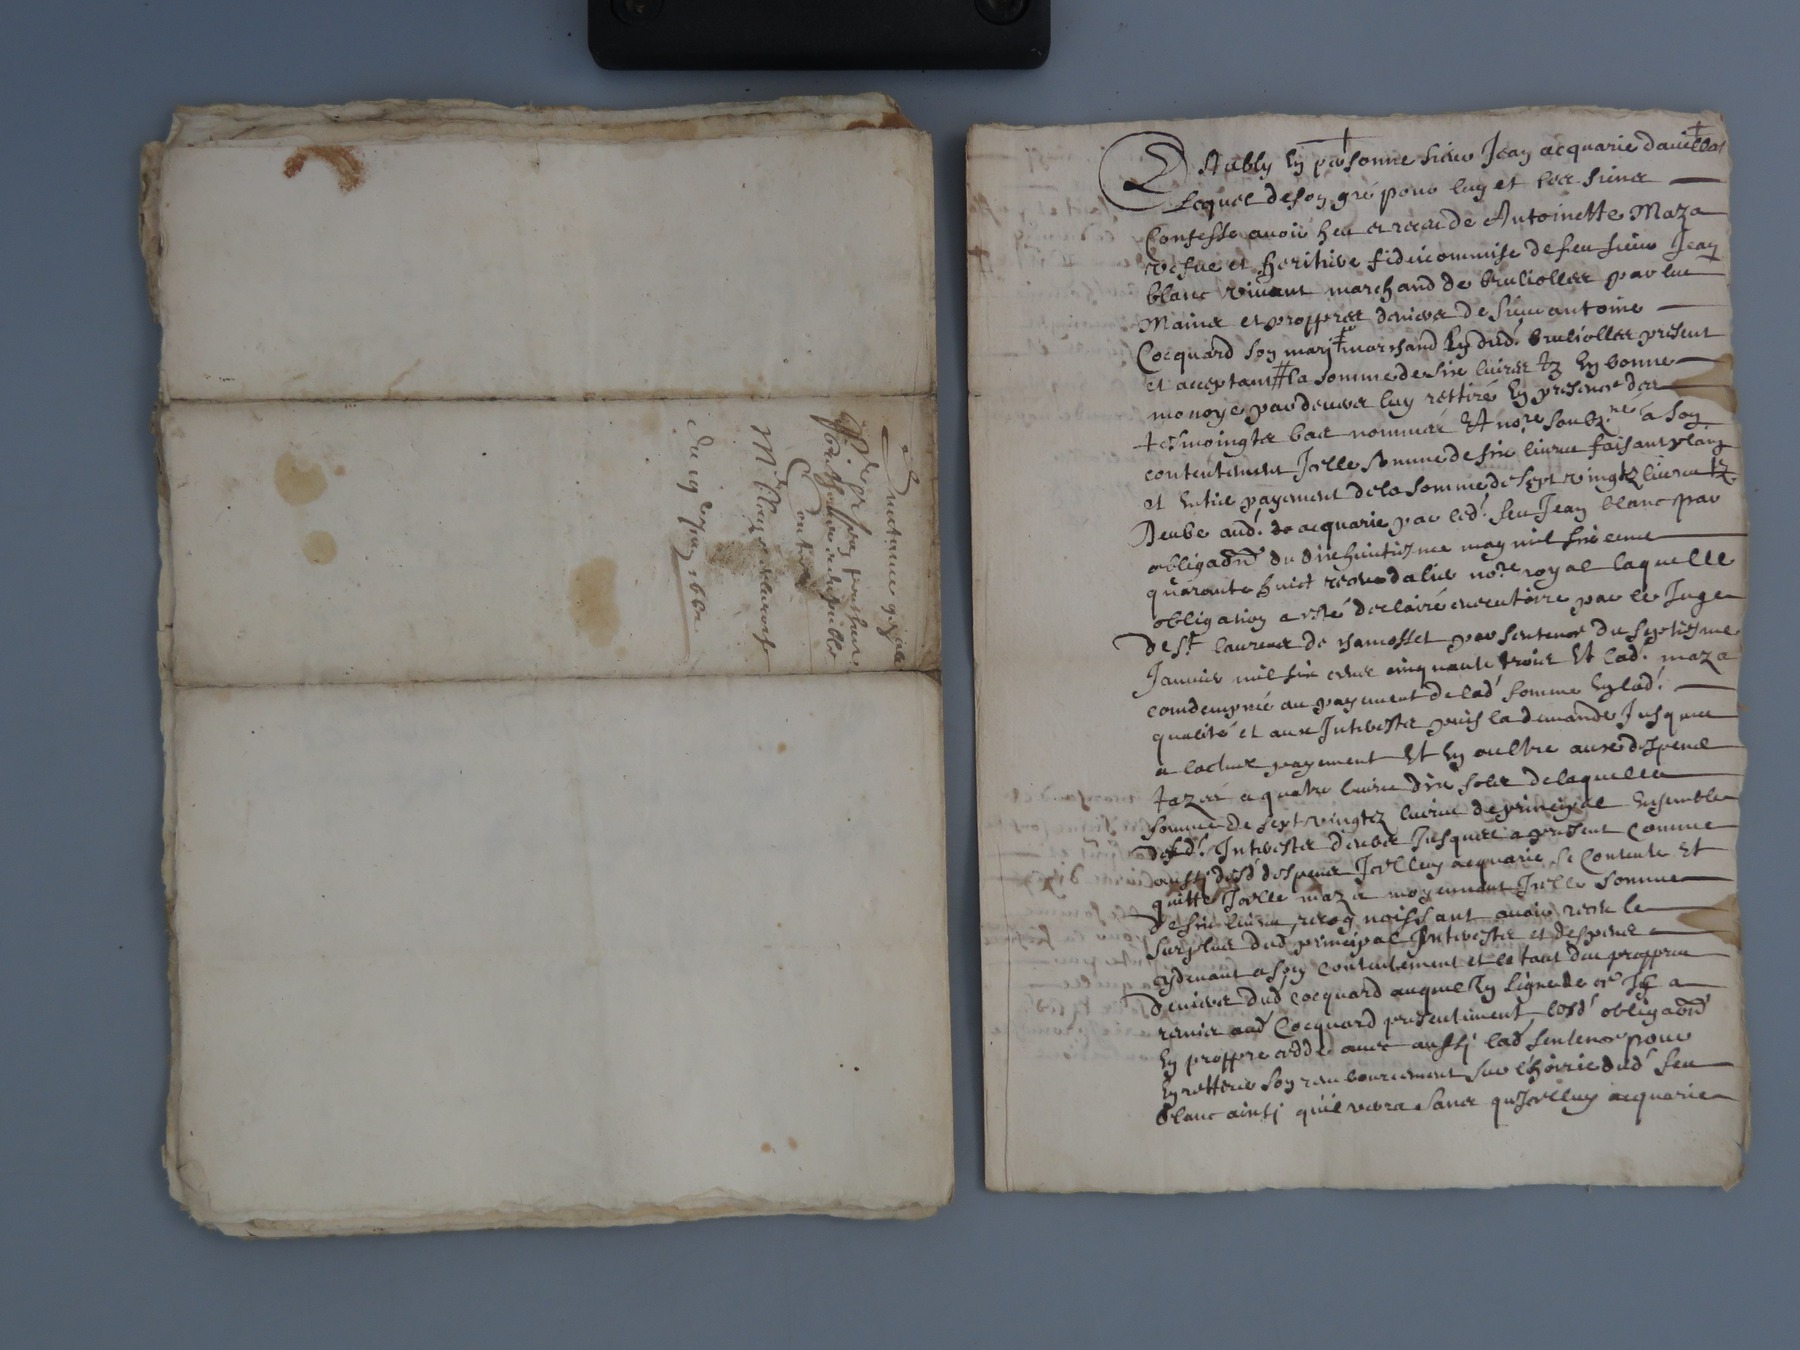 Quittance g
du 19e 1660
Estably En personne sieur Jean acquarie
Lequel de son gré pour luy et les siens
Confesse avoir heu et receu de Antoinette Maza
vefve et heritiere fideicommise de feu sieur Jean
blanc vivant marchand de bruliolles par les
Mains et propres deniers de sieur antoine
Cocquard son mary marchand dud. brulioles present
et acceptant la somme de six livres tz En bonne
monoye par devers luy rettiré En presence des
tesmoingtz bas nommés Et nore soubz.né a son
contentement Icelle somme de six livres faisant plain
et Entier payement de la somme de sept vingtz livres tz
deube aud. acquarie par led. feu Jean blanc par
obligaõn du dixhuitiesme may mil six cens
quarante huict receu dalier nore royal laquelle
obligation a esté declairé executoire par le Juge
de St. laurens de chamosset par sentence du septiesme
Janvier mil six cens cinquante trois Et lad. maza
condempnée au payement de lad. somme En lad.
qualité et aux Interestz puis la demande Jusques
a lactuel payement Et En oultre aux despens
tazés a quatre livres dix solz de laquelle
somme de sept vingtz livres de principal Ensemble
desd. Interestz deubz Jusques a present Comme
aussi desd. despens Icelluy acquarie se Contente Et
quitte Icelle maza moyennant Icelle somme
de six livres recognoissant avoir receu le
surplus dud. principal Interestz et despens
cydevant a son contentement et le tout des propres
deniers dud. Cocquard auquel En signe de ce Il a
remis aud. Cocquard presentement lesd. obligaõn
En propre cedde avec aussi lad. sentence pour
En rettirer son remboursement sur lhoirie dud. feu
blanc ainsi quil verra sans quIcelluy acquarie